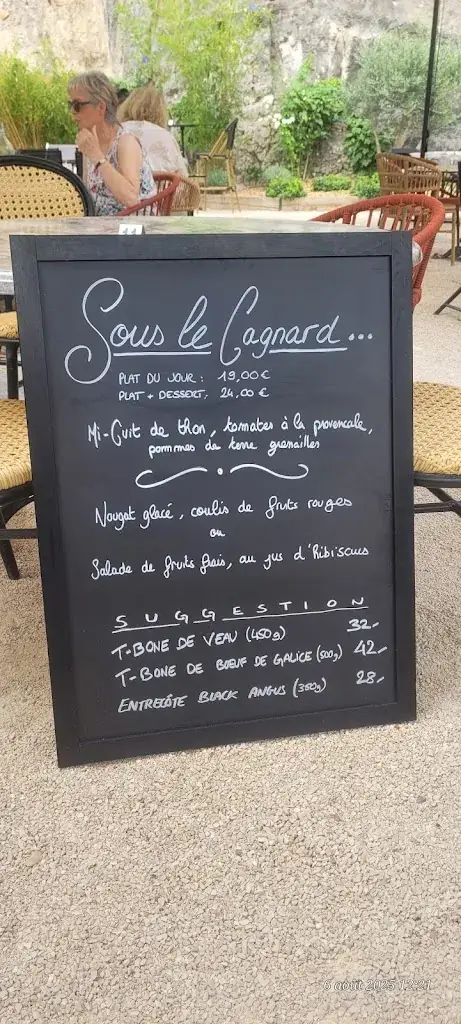 11
Sous le Cagnard...
PLAT DU JOUR : 19,00€
PLAT + DESSERT: 24,00€
Mi-Cuit de thon, tomates à la provencale,
pommes de terre grenailles
Nougat glacé, coulis de fruits rouges
ou
Salade de fruits frais, au jus d'hibiscus
SUGGESTION
T-BONE DE VEAU (450g) 32,-
T-BONE DE BŒUF DE GALICE (500g) 42,-
ENTRECÔTE BLACK ANGUS (350g) 28,-
6 août 2025 12:21